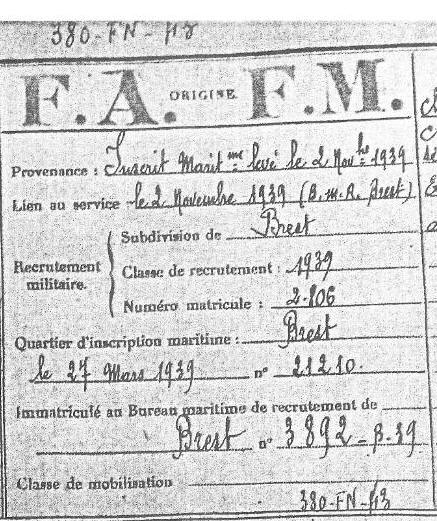 380-FN-43
F.A. ORIGINE F.M.
Provenance : Inscrit Marit.me levé le 2 Nov.bre 1939
Lien au service le 2 Novembre 1939 (B.M.R. Brest)
Subdivision de Brest
Recrutement militaire.
Classe de recrutement : 1939
Numéro matricule : 2.106
Quartier d'inscription maritime : Brest
le 27 Mars 1939 n° 21210.
Immatriculé au Bureau maritime de recrutement de
Brest n° 3892-B-39
Classe de mobilisation
380-FN-43